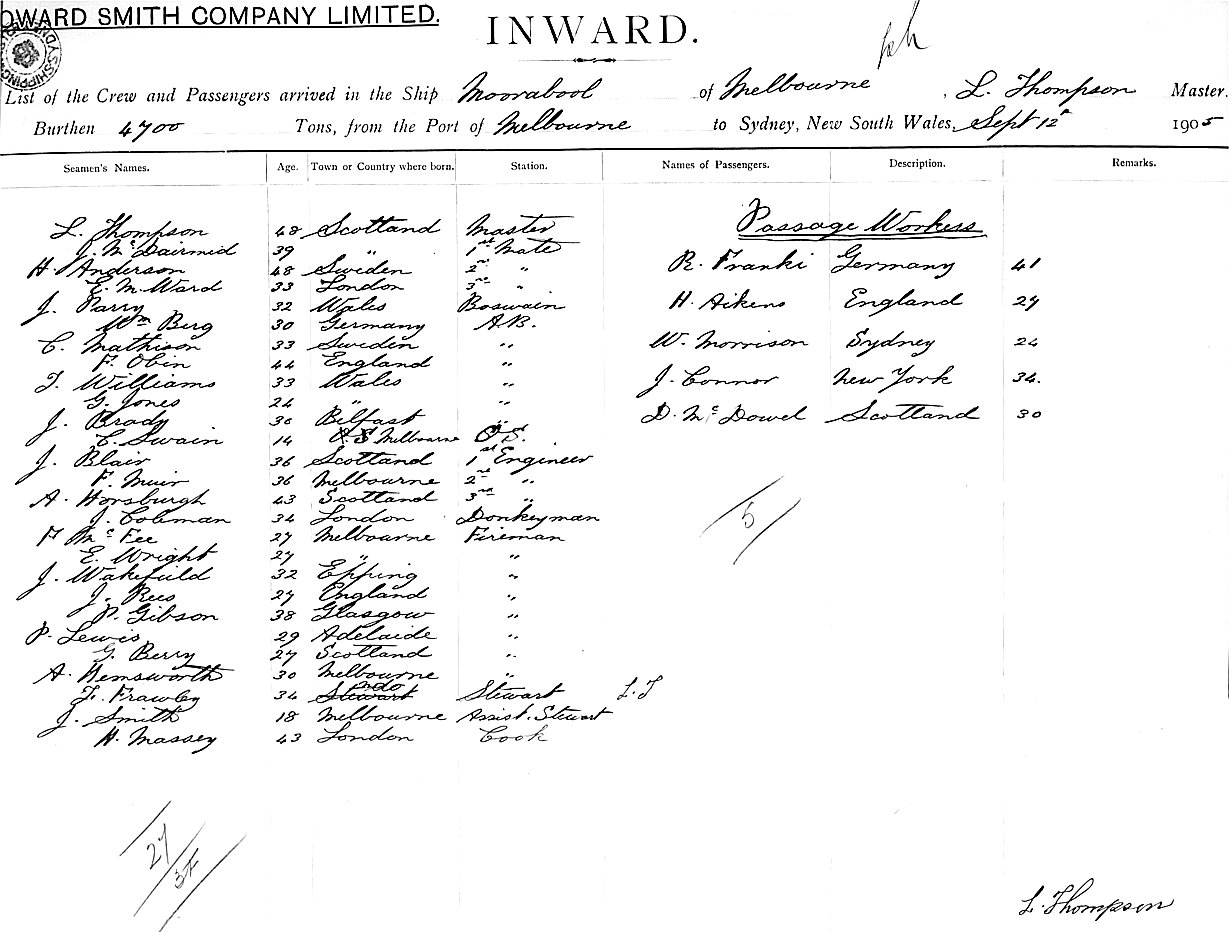 OWARD SMITH COMPANY LIMITED.
INWARD.
List of the Crew and Passengers arrived in the Ship Moorabool of Melbourne, L. Thompson Master.
Burthen 4700 Tons, from the Port of Melbourne to Sydney, New South Wales, Sept 12th 1905
Seamen's Names. Age. Town or Country where born. Station. Names of Passengers. Description. Remarks.
Passage Workers
L. Thompson 48 Scotland Master
J. McDairmid 39 " 1st Mate
H. Anderson 48 Sweden 2nd "
E. M. Ward 33 London 3rd "
J. Parry 32 Wales Boswain
Wm Berg 30 Germany A.B.
C. Mathison 33 Sweden "
F. Obin 44 England "
T. Williams 33 Wales "
G. Jones 24 " "
J. Brady 30 Belfast "
C. Swain 14 O.S Melbourne O.S.
J. Blair 36 Scotland 1st Engineer
F. Muir 36 Melbourne 2nd "
A. Horsburgh 43 Scotland 3rd "
J. Coleman 34 London Donkeyman
F McFee 27 Melbourne Fireman
E. Wright 27 " "
J. Wakefield 32 Epping "
J. Rees 27 England "
P. Gibson 38 Glasgow "
P. Lewis 29 Adelaide "
G. Berry 27 Scotland "
A. Hemsworth 30 Melbourne "
F. Frawley 34 Stewart do Stewart L.T
J. Smith 18 Melbourne Assist. Stewart
H. Massey 43 London Cook
R. Franki Germany 41
H. Aikens England 27
W. Morrison Sydney 24
J. Connor New York 34.
D. McDowel Scotland 30
5
27
L. Thompson